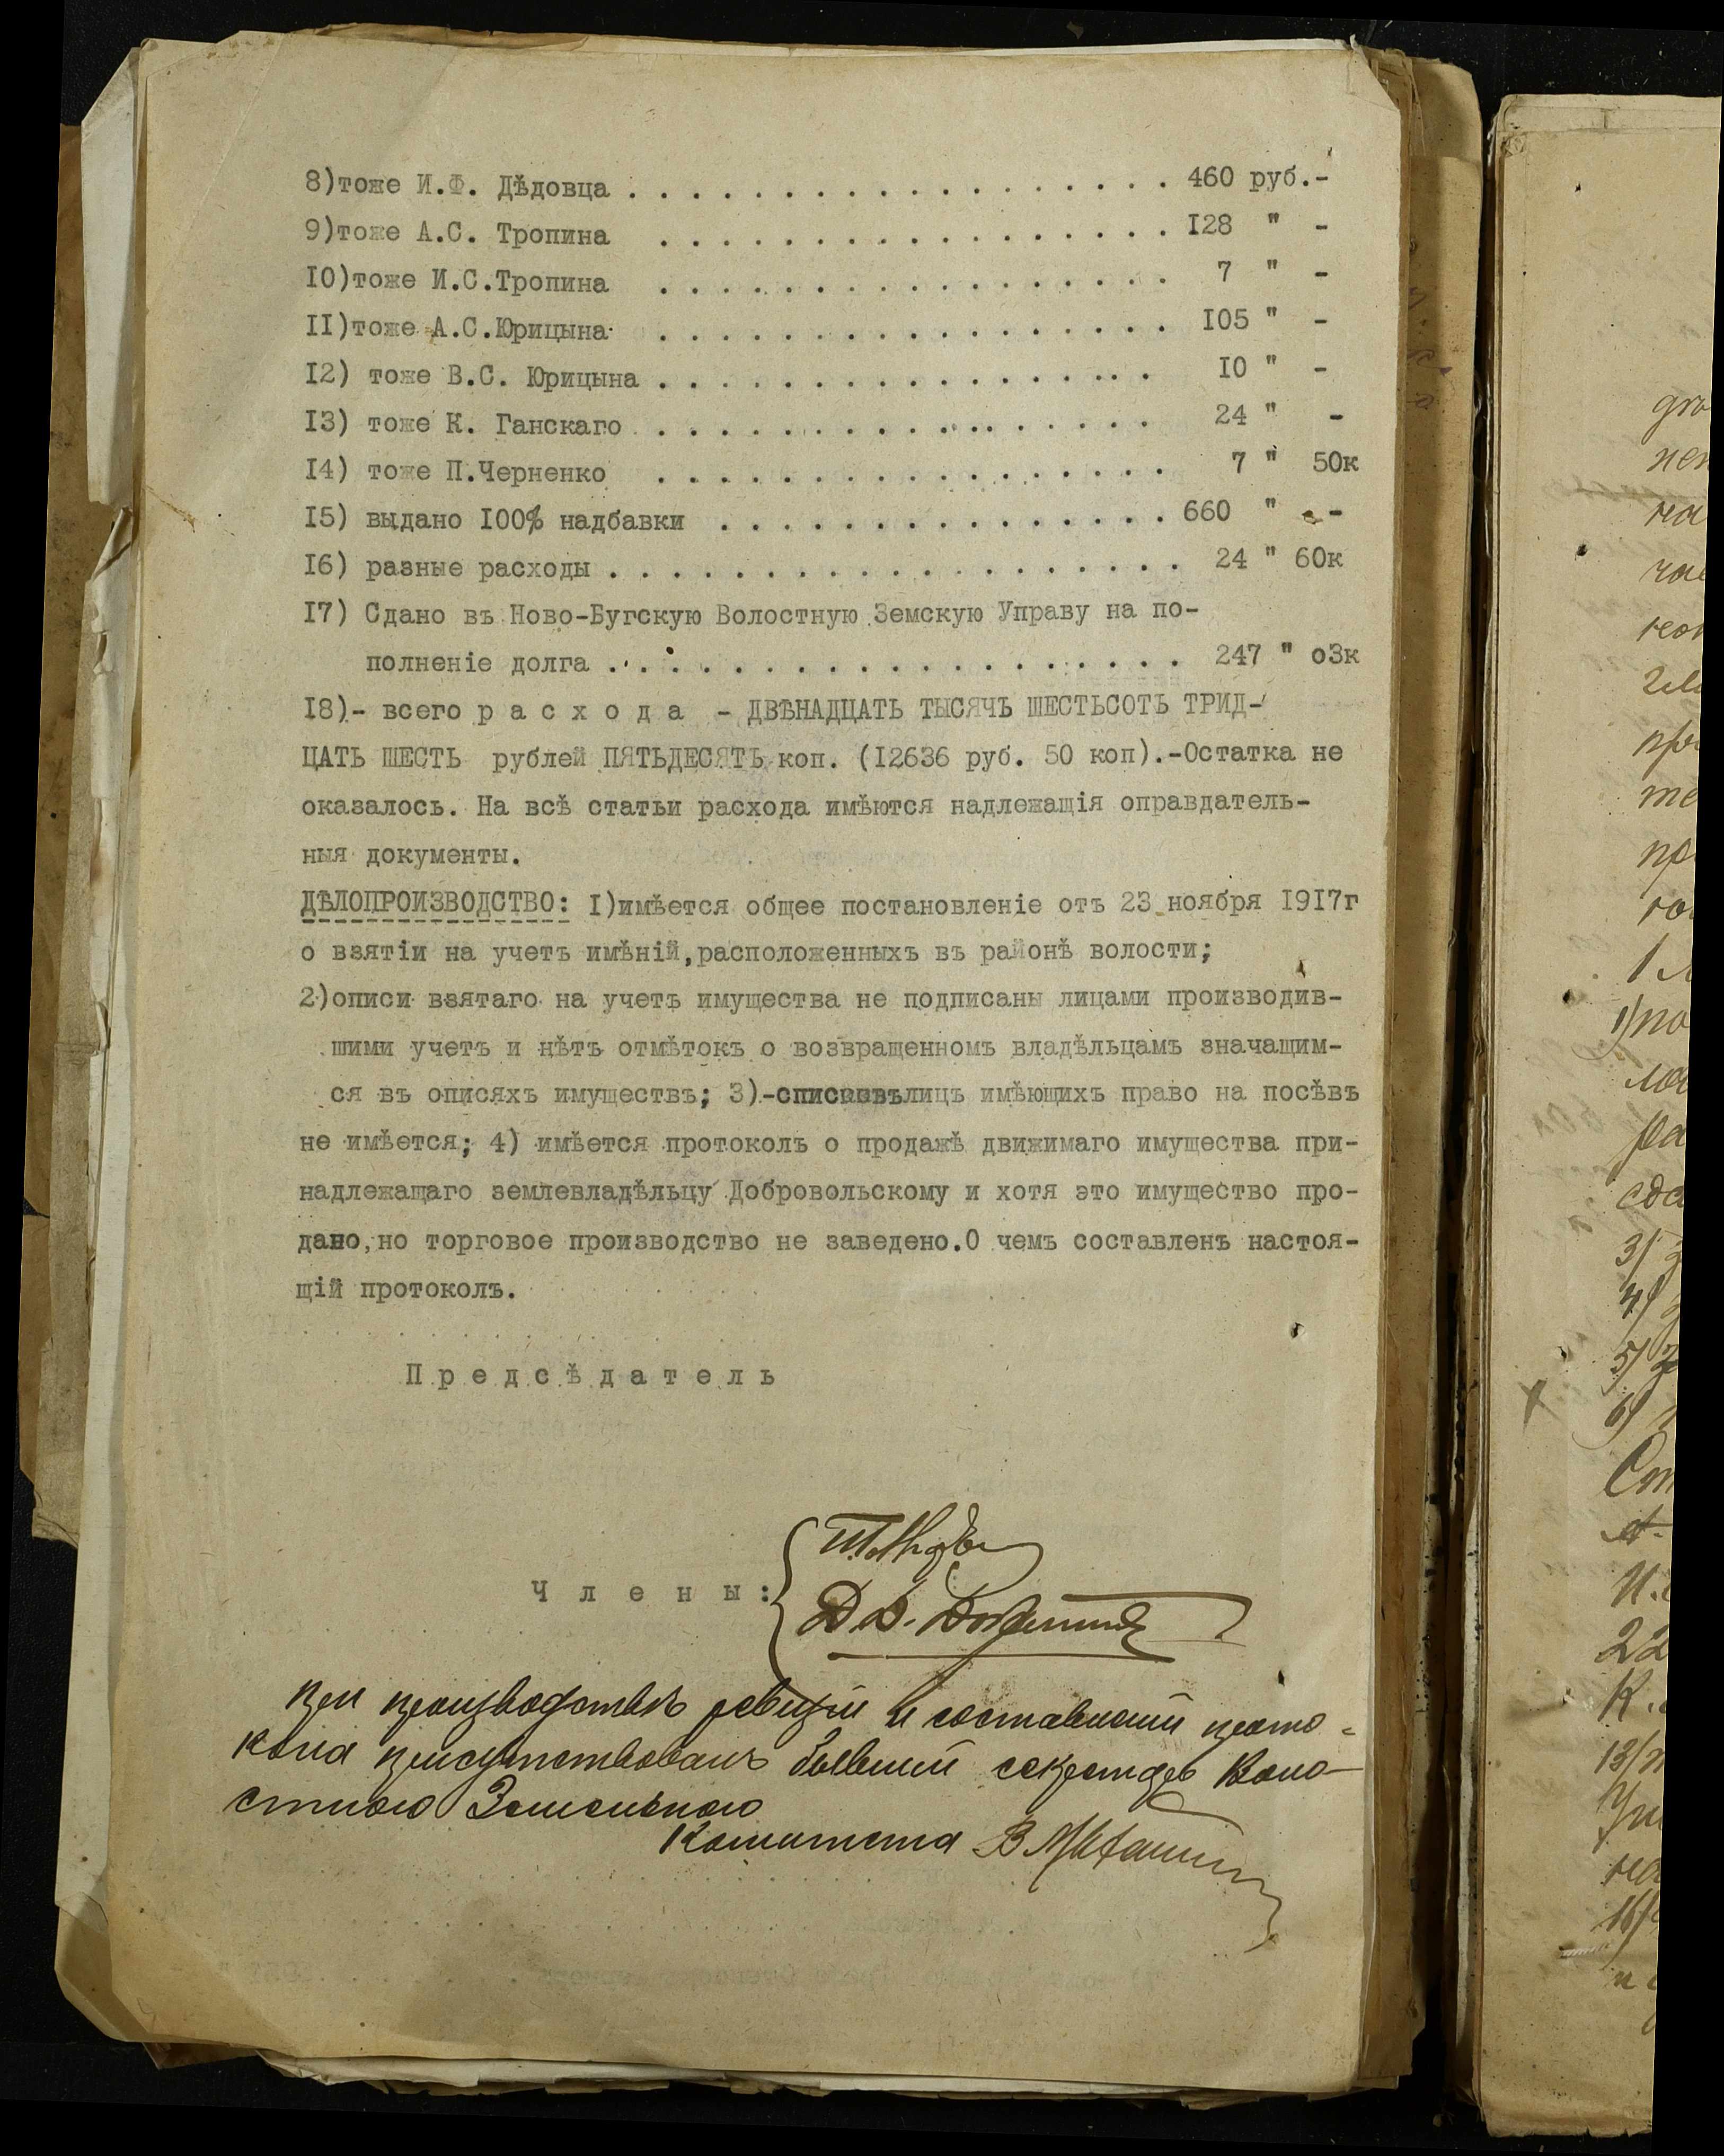 8)тоже И.Ф. Дѣдовца . . . . . . . . . . . . . . . . . . 460 руб.-
9)тоже А.С. Тропина . . . . . . . . . . . . . . . . . 128 " -
10)тоже И.С.Тропина . . . . . . . . . . . . . . . . . 7 " -
11)тоже А.С.Юрицына . . . . . . . . . . . . . . . . . 105 " -
12) тоже В.С. Юрицына . . . . . . . . . . . . . . . .. . 10 " -
13) тоже К. Ганскаго . . . . . . . . . . . . . . . . 24 " -
14) тоже П.Черненко . . . . . . . . . . . . . . . . . 7 " 50к
15) выдано 100% надбавки . . . . . . . . . . . . . . . 660 " -
16) разные расходы . . . . . . . . . . . . . . . . . . . 24 " 60к
17) Сдано въ Ново-Бугскую Волостную Земскую Управу на по-
полненіе долга . . . . . . . . . . . . . . . . . . . 247 " о3к
18)- всего р а с х о д а - ДВѢНАДЦАТЬ ТЫСЯЧЪ ШЕСТЬСОТЪ ТРИД-
ЦАТЬ ШЕСТЬ рублей ПЯТЬДЕСЯТЪ коп. (12636 руб. 50 коп).-Остатка не
оказалось. На всѣ статьи расхода имѣются надлежащія оправдатель-
ныя документы.
ДѢЛОПРОИЗВОДСТВО: 1)имѣется общее постановленіе отъ 23 ноября 1917г
о взятіи на учетъ имѣній,расположенныхъ въ районѣ волости;
2)описи взятаго на учетъ имущества не подписаны лицами производив-
шими учетъ и нѣтъ отмѣтокъ о возвращенномъ владѣльцамъ значащим-
ся въ описяхъ имуществъ; 3)-списковълицъ имѣющихъ право на посѣвъ
не имѣется; 4) имѣется протоколъ о продажѣ движимаго имущества при-
надлежащаго землевладѣльцу Добровольскому и хотя это имущество про-
дано,но торговое производство не заведено.О чемъ составленъ настоя-
щій протоколъ.
П р е д с ѣ д а т е л ь
Ч л е н ы :
при производствѣ ревизіи и составленіи прото-
кола присутствовалъ бывшій секретарь Воло-
стного Земельного
Комитета